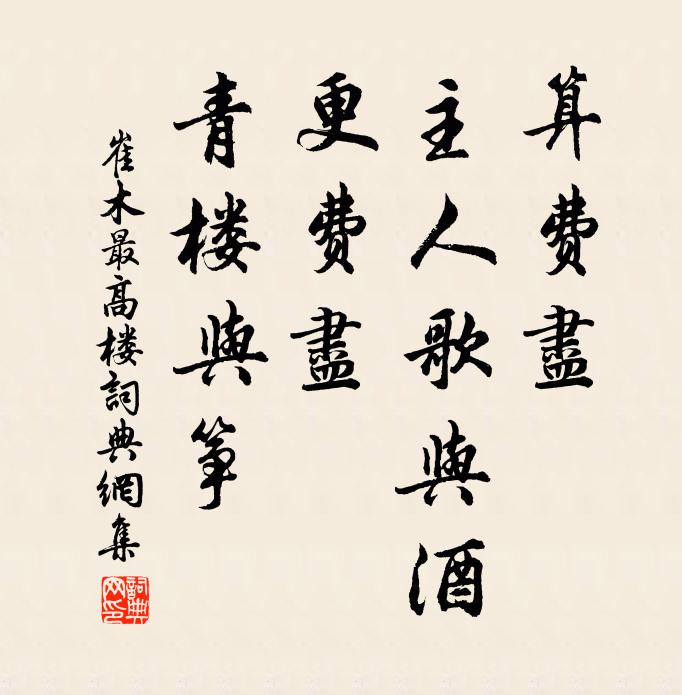 算費盡
主人歌與酒
更費盡
青楼與筝
崔木最高楼詞典網集
詞典網印